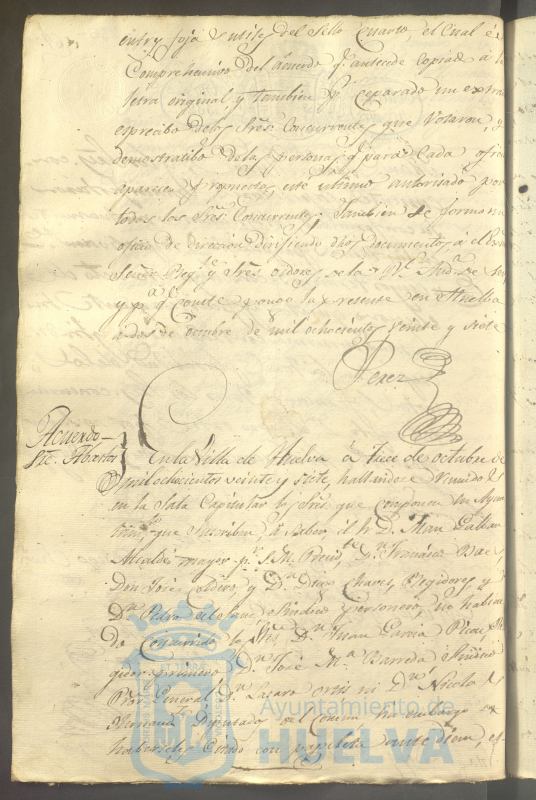 entry foja y utiles del Sello Cuarto, el Cual es
Comprehensivo del acuerdo qe. antecede Copiado a la
letra original y tambien pr. Separado un extra
de los Sres. Concurrentes que Votaron, y
demostratibo de las personas qe. para Cada oficio
aparecen Propuestas, este ultimo autorisado por
todos los Sres. Concurrentes; tambien se formaron
oficio de direccion dirifiendo dhos. documentos á el Exmo.
Señor Preg.te y Sres. oidores de la Rl. Aud.
y pa. qe. Conste pongo la presente en Huelba
a dos de Octubre de mil ochocientos veinte y siete
Perez
Acuerdo
Sre. Abastos
En la Villa de Huelva á trece de octubre de
mil ochocientos veinte y siete, hallandose reunidos
en la Sala Capitular los Sres. que componen su Ayun
tamto. que Suscriben, á saber, el Sr. Dn. Juan
Alcalde mayor pr. S. M. Presidte. Dn. Francisco
Don José Caldero, y Dn. Diego Chaves, Regidores, y
Dn. Pedro del Sindico Personero, no habien
do Concurrido los Sres. Dn. Juan Garcia Re
gidor primero Dn. José Ma. Barreda Sindico
Pror. General Dn. Lazaro Ortis ni Dn. Nicolas
Diputados del Comun sin embargo de
haberseles Citado con papeleta ante diem, es
Ayuntamiento de
HUELVA